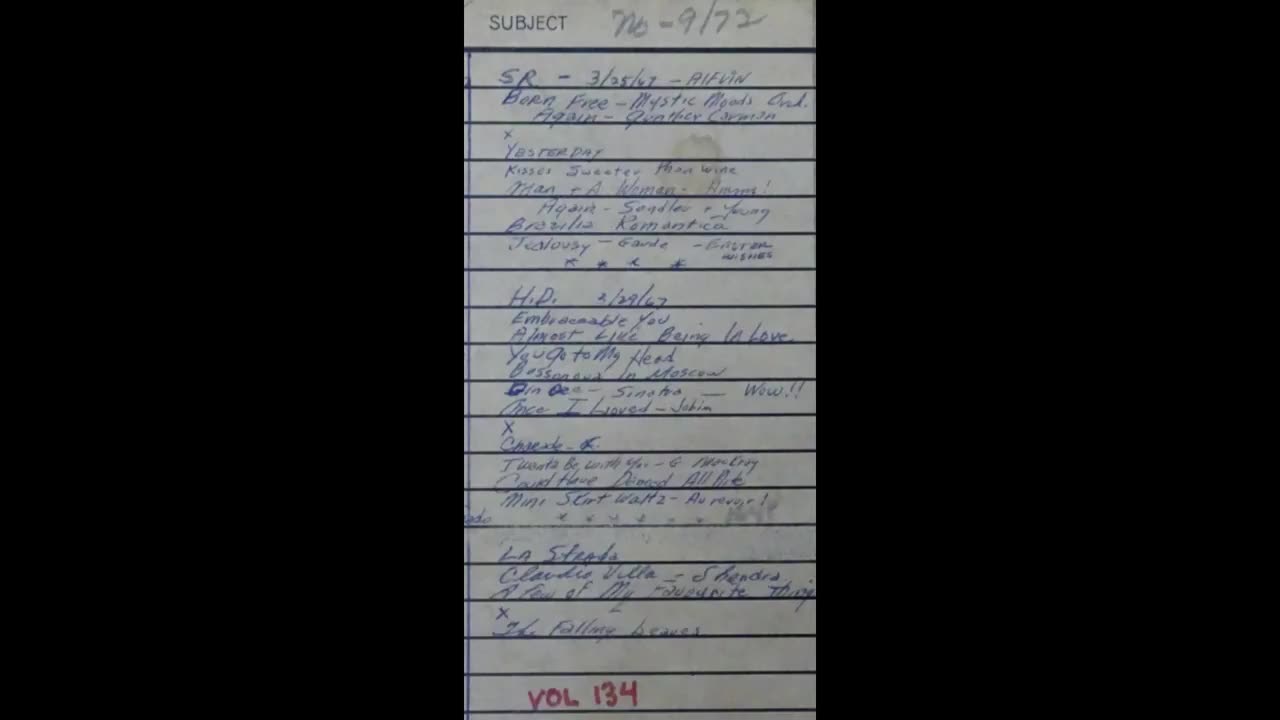 SUBJECT No-9/72
SR - 3/25/67 - AlFViN
Born Free - Mystic Moods Orch.
Again - Gunther
x
YESTERDAY
Kisses Sweeter than wine
Man + A Woman -
Again - Sandler + Young
Brazilia Romantica
Jealousy - - EASTER
WISHES
* * * *
H.D. 2/29/67
Embraceable You
Almost Like Being In Love.
You Go to My Head
In Moscow
- Sinatra — Wow!!
Once I Loved - Jobim
x

I Wanta Be with you - G
Could Have Danced All Nite
Mini Skirt Waltz - Au revoir!
* * * * - *
LA Strada
Claudio Villa -
A Few of My Favourite Thing
x
The Falling Leaves
VOL 134